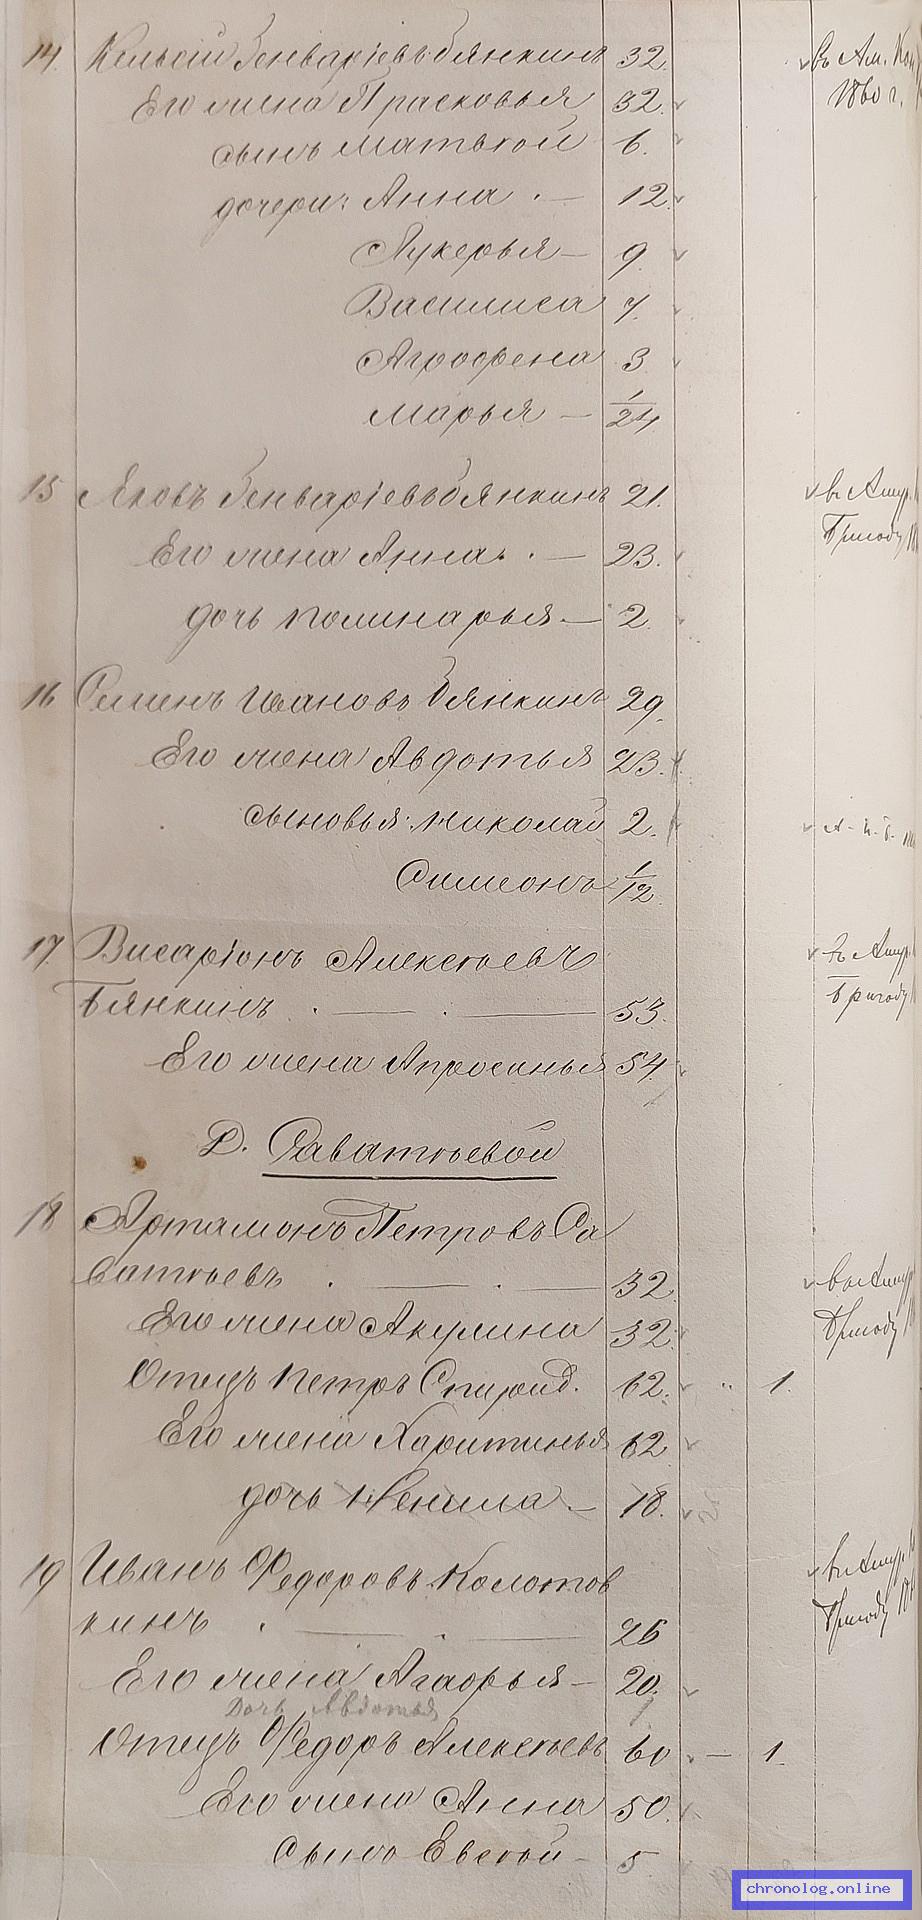 14. Кельсій Генваріевъ Бянкинъ 32. въ Ам. Кон
Его жена Прасковья 32. 1860 г.
сынъ Матвей 6.
дочери: Анна . — 12.
Лукерья — 9.
Василиса 7.
Агрофена 3
Марья — 1/24
15 Яковъ Генваріевъ Бянкинъ 21. въ Амур.
Его жена Анна . — 23. Бригаду
дочь Полинарья — 2.
16 Семенъ Ивановъ Бянкинъ 29.
Его жена Авдотья 23.
сыновья: Николай 2.
Симионъ 1/12
17. Висаріонъ Алексѣевъ въ Амур.
Бянкинъ . — . — 53. Бригаду
Его жена Апросинья 54.
Д. Саватѣевой
18 Артамонъ Петровъ Са
ватѣевъ . — . — 32. въ Амур
Его жена Акулина 32. Бригаду
Отецъ Петръ Спирид. 62. „ 1.
Его жена Харитинья 62
дочь Ненила — 18.
19 Иванъ Федоровъ Колотов въ Амур.
кинъ . — . — 26 Бригаду
Его жена Агафья — 20.
Дочь Авдотья 1
Отецъ Федоръ Алексѣевъ 60 — 1.
Его жена Анна 50.
Сынъ Евсей — 5
chronolog.online